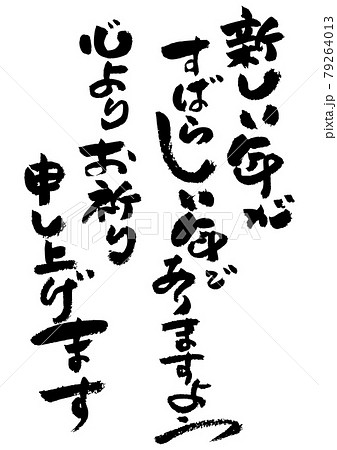 新しい年が
すばらしい年で
ありますよう
心よりお祈り
申し上げます
PIXTA
pixta.jp - 79264013